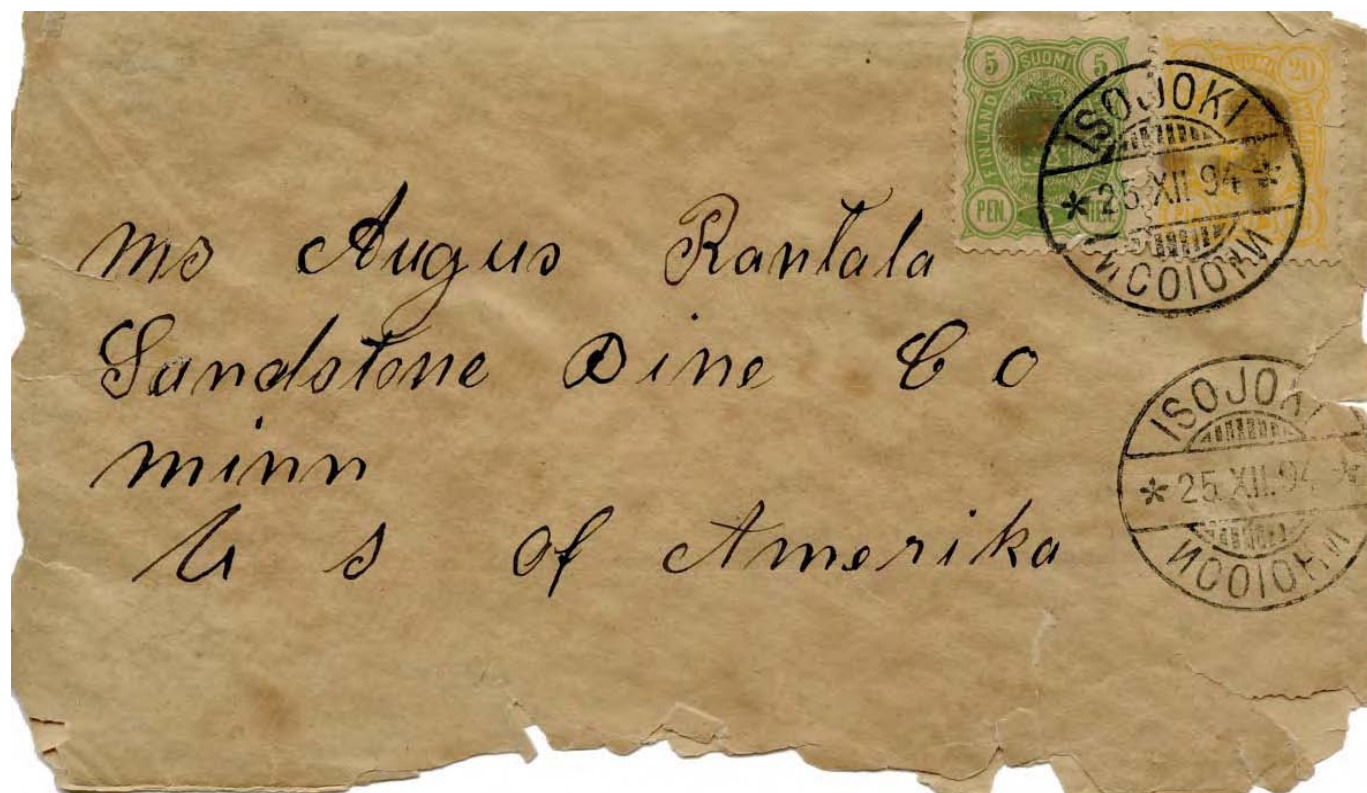 5 SUOMI 5
FINLAND
PEN.
20
ISOJOKI
* 25.XII.94 *
ИСОІОКИ
ms Augus Rantala
Sandstone Dine C O
minn
U s of Amerika
ISOJOKI
* 25.XII.94 *
ИСОІОКИ